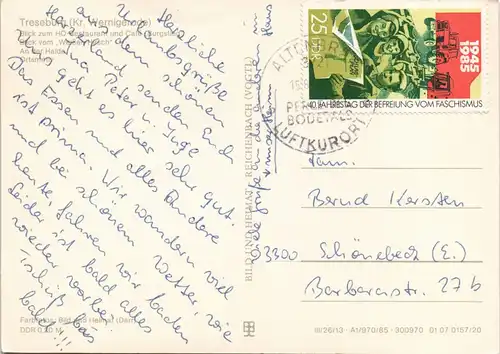 Treseburg (Kr. Wernigerode)
Blick zum HO-Restaurant und Café „Burgstieg"
Blick vom „Weißen Hirsch"
An der Halde
Ortsmitte
Herzliche
Urlaubsgrüße
aus dem schönen
Harz senden Euch
Peter u. Inge
Uns geht es hier sehr gut.
Das Essen und alles Andere
ist prima. Wir wandern viel
bei schönem Wetter, wie
heute, fahren wir baden
Leider ist bald alles
wieder vorbei.
Tschüß bis
bald!!!
Viele Grüße an die
Farbfotos: Bild und Heimat
DDR 0,40 M
BILD UND HEIMAT REICHENBACH (VOGTL)
25 DDR
1945
1985
40. JAHRESTAG DER BEFREIUNG VOM FASCHISMUS
PERLE
BODETALS
LUFTKURORT
Fam.
Bernd Kersten
3300 Schönebeck (E.)
Barbarastr. 27b
III/26/13 A1/970/85 300970 01 07 0157/20